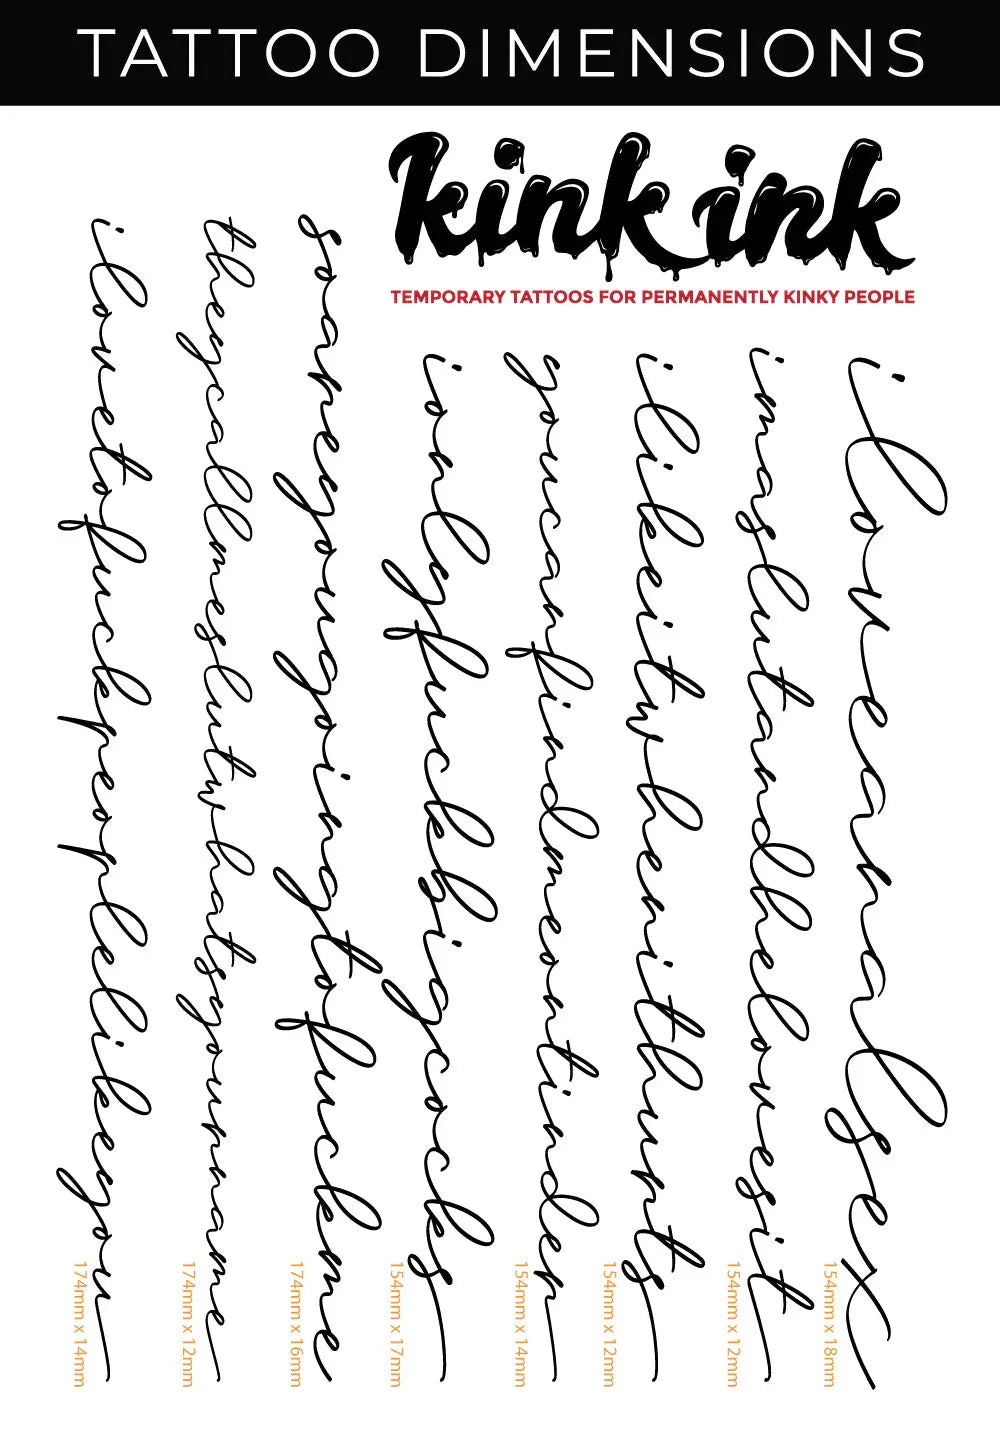 TATTOO DIMENSIONS
kink ink
TEMPORARY TATTOOS FOR PERMANENTLY KINKY PEOPLE
ilovetofuckpeoplelikeyou
174mm x 14mm
theycallmeslutwhatsyourname
174mm x 12mm
soareyougoingtofuckme
174mm x 16mm
ionlyfuckbigcocks
154mm x 17mm
youcanfindmeontinder
154mm x 14mm
ilikeitwhenithurts
154mm x 12mm
imaslutandhelovesit
154mm x 12mm
iloveanalsex
154mm x 18mm